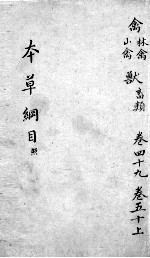 禽 林禽
山禽
獸 畜類
卷四十九 卷五十上
本草綱目